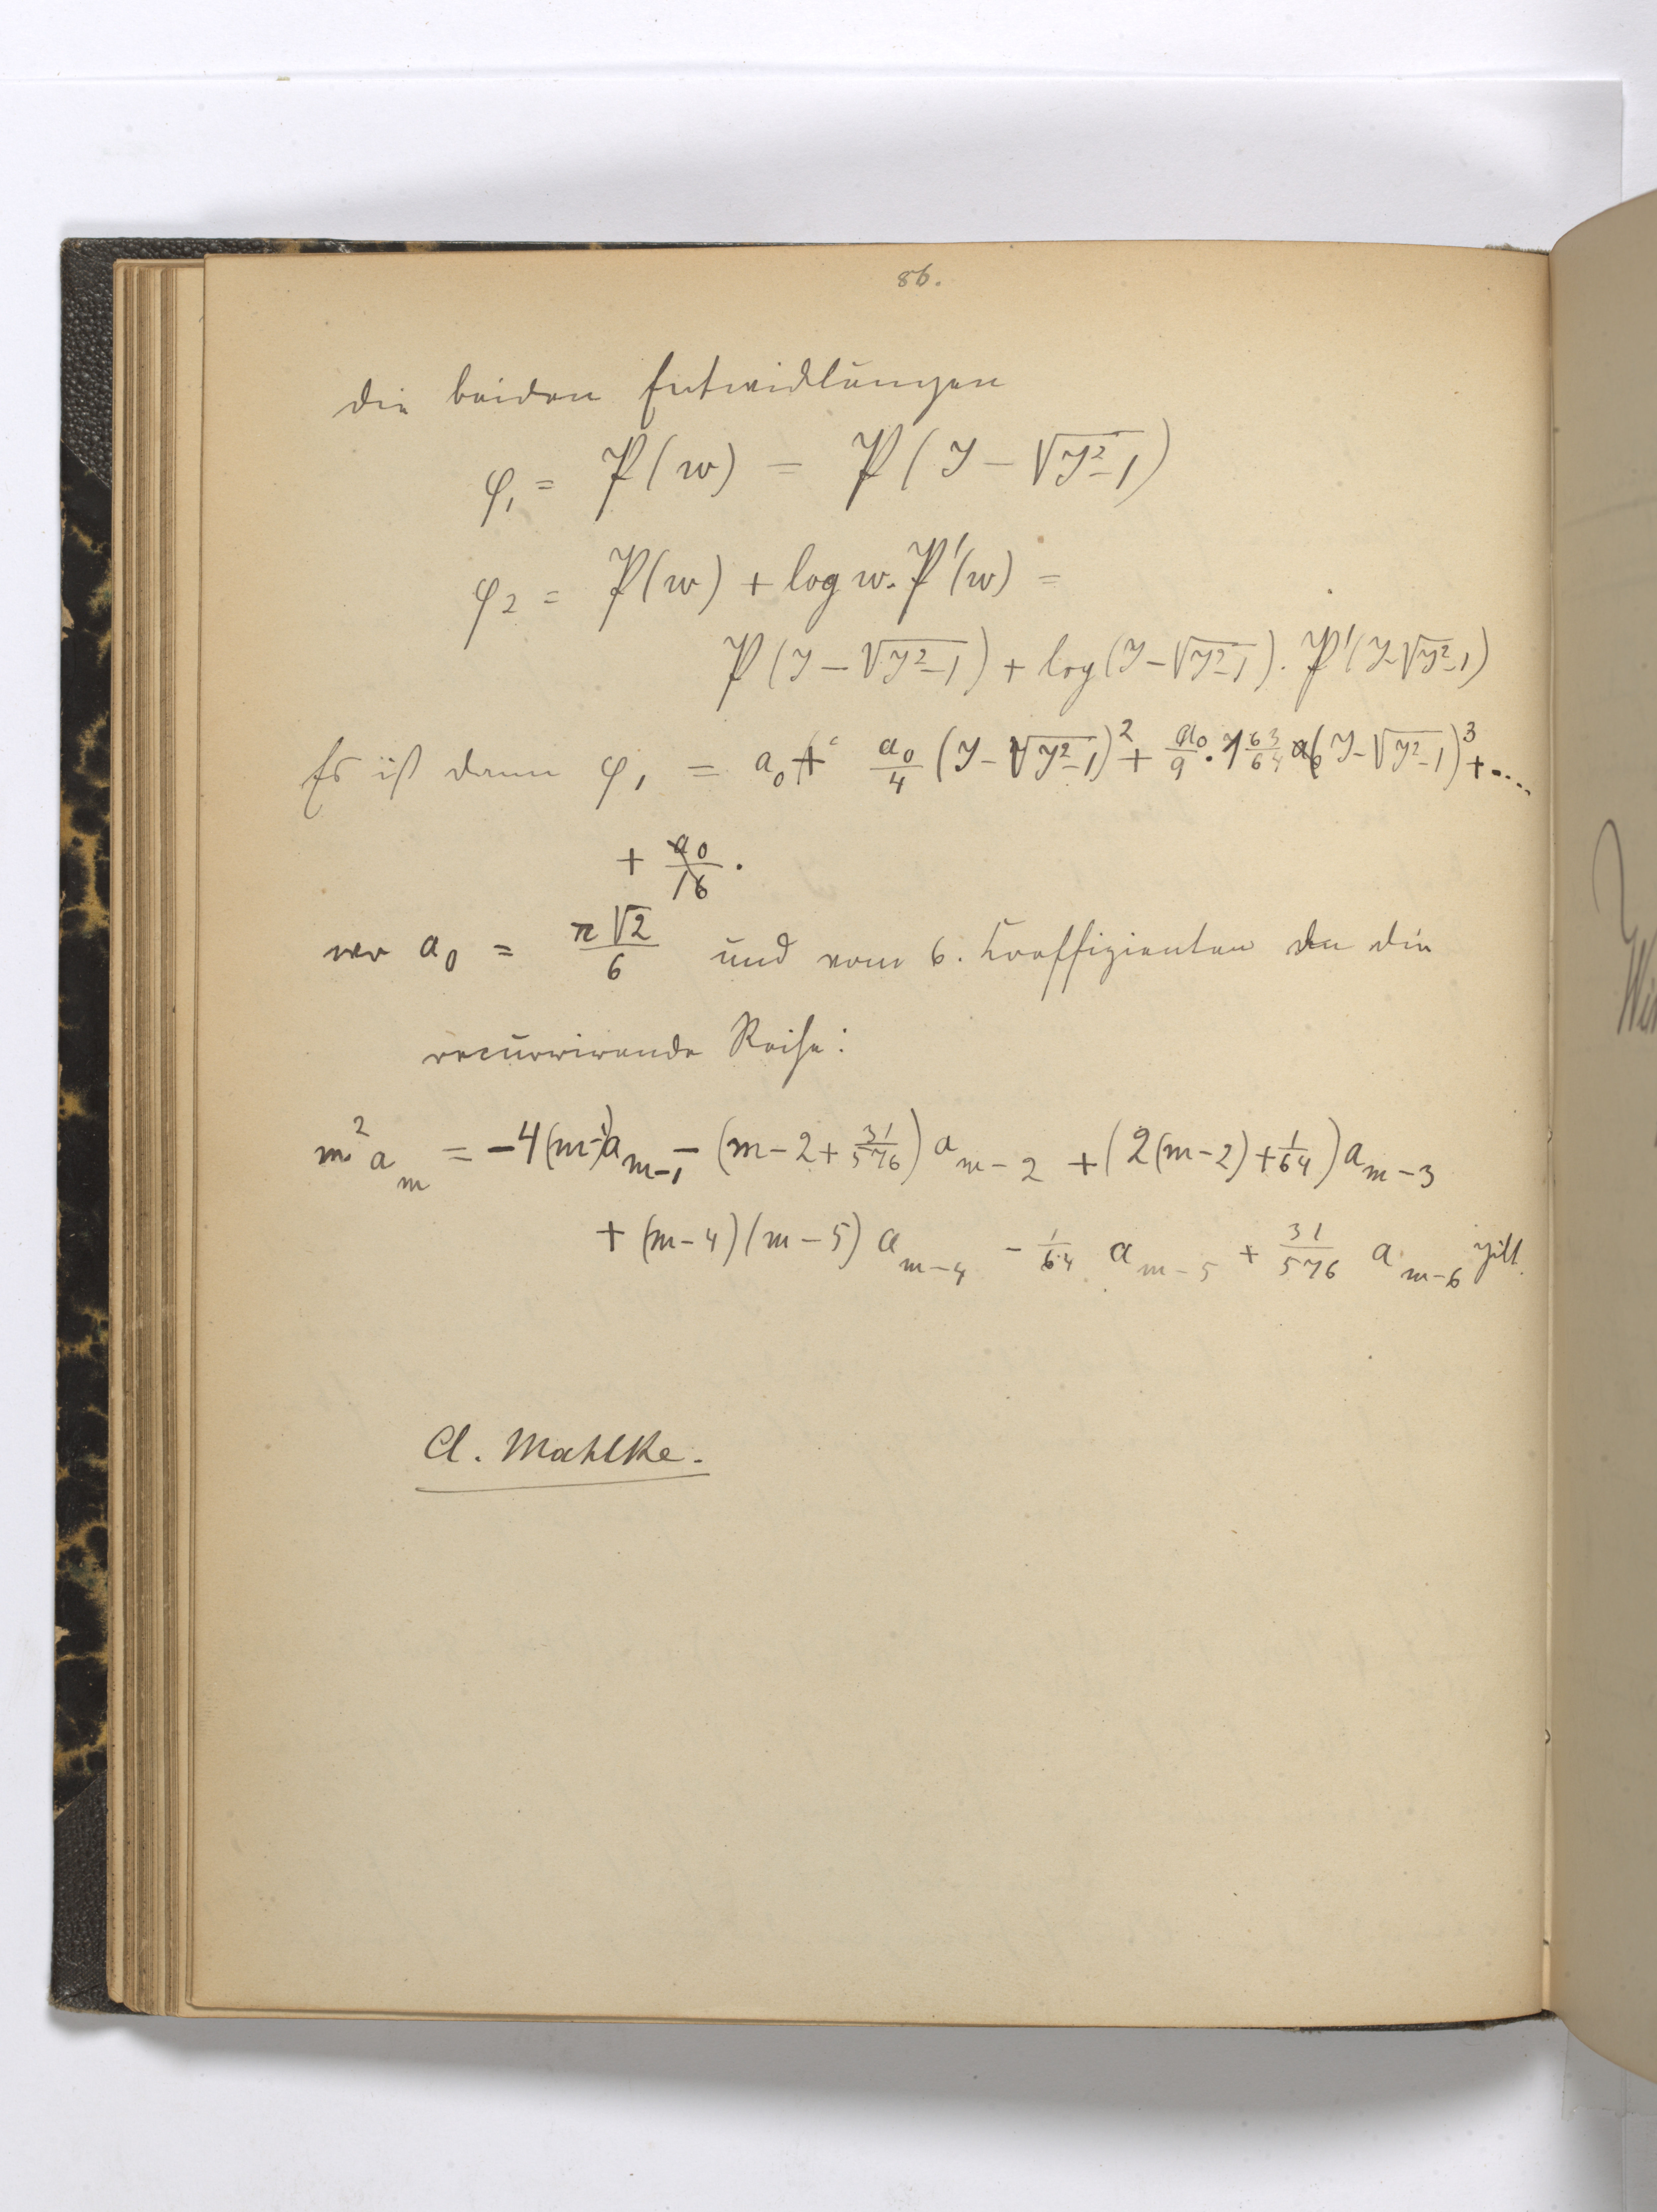 86.
die beiden Entwicklungen
φ₁ = P(w) = P(y − √(y²−1))
φ₂ = P(w) + log w. P'(w) =
P(y − √(y²−1)) + log(y − √(y²−1)). P'(y−√(y²−1))
Es ist dann φ₁ = a₀ + a₀/4 (y − √(y²−1))² + a₀/9 · 63/64 (y − √(y²−1))³ + ....
+ a₀/16 .
wo a₀ = π√2/6 und vom 6. Coeffizienten an die
recurrirende Reihe:
m² a_m = −4(m−1)a_{m−1} − (m−2+31/576) a_{m−2} + (2(m−2)+1/64) a_{m−3}
+ (m−4)(m−5) a_{m−4} − 1/64 a_{m−5} + 31/576 a_{m−6} gilt.
A. Mahlke.